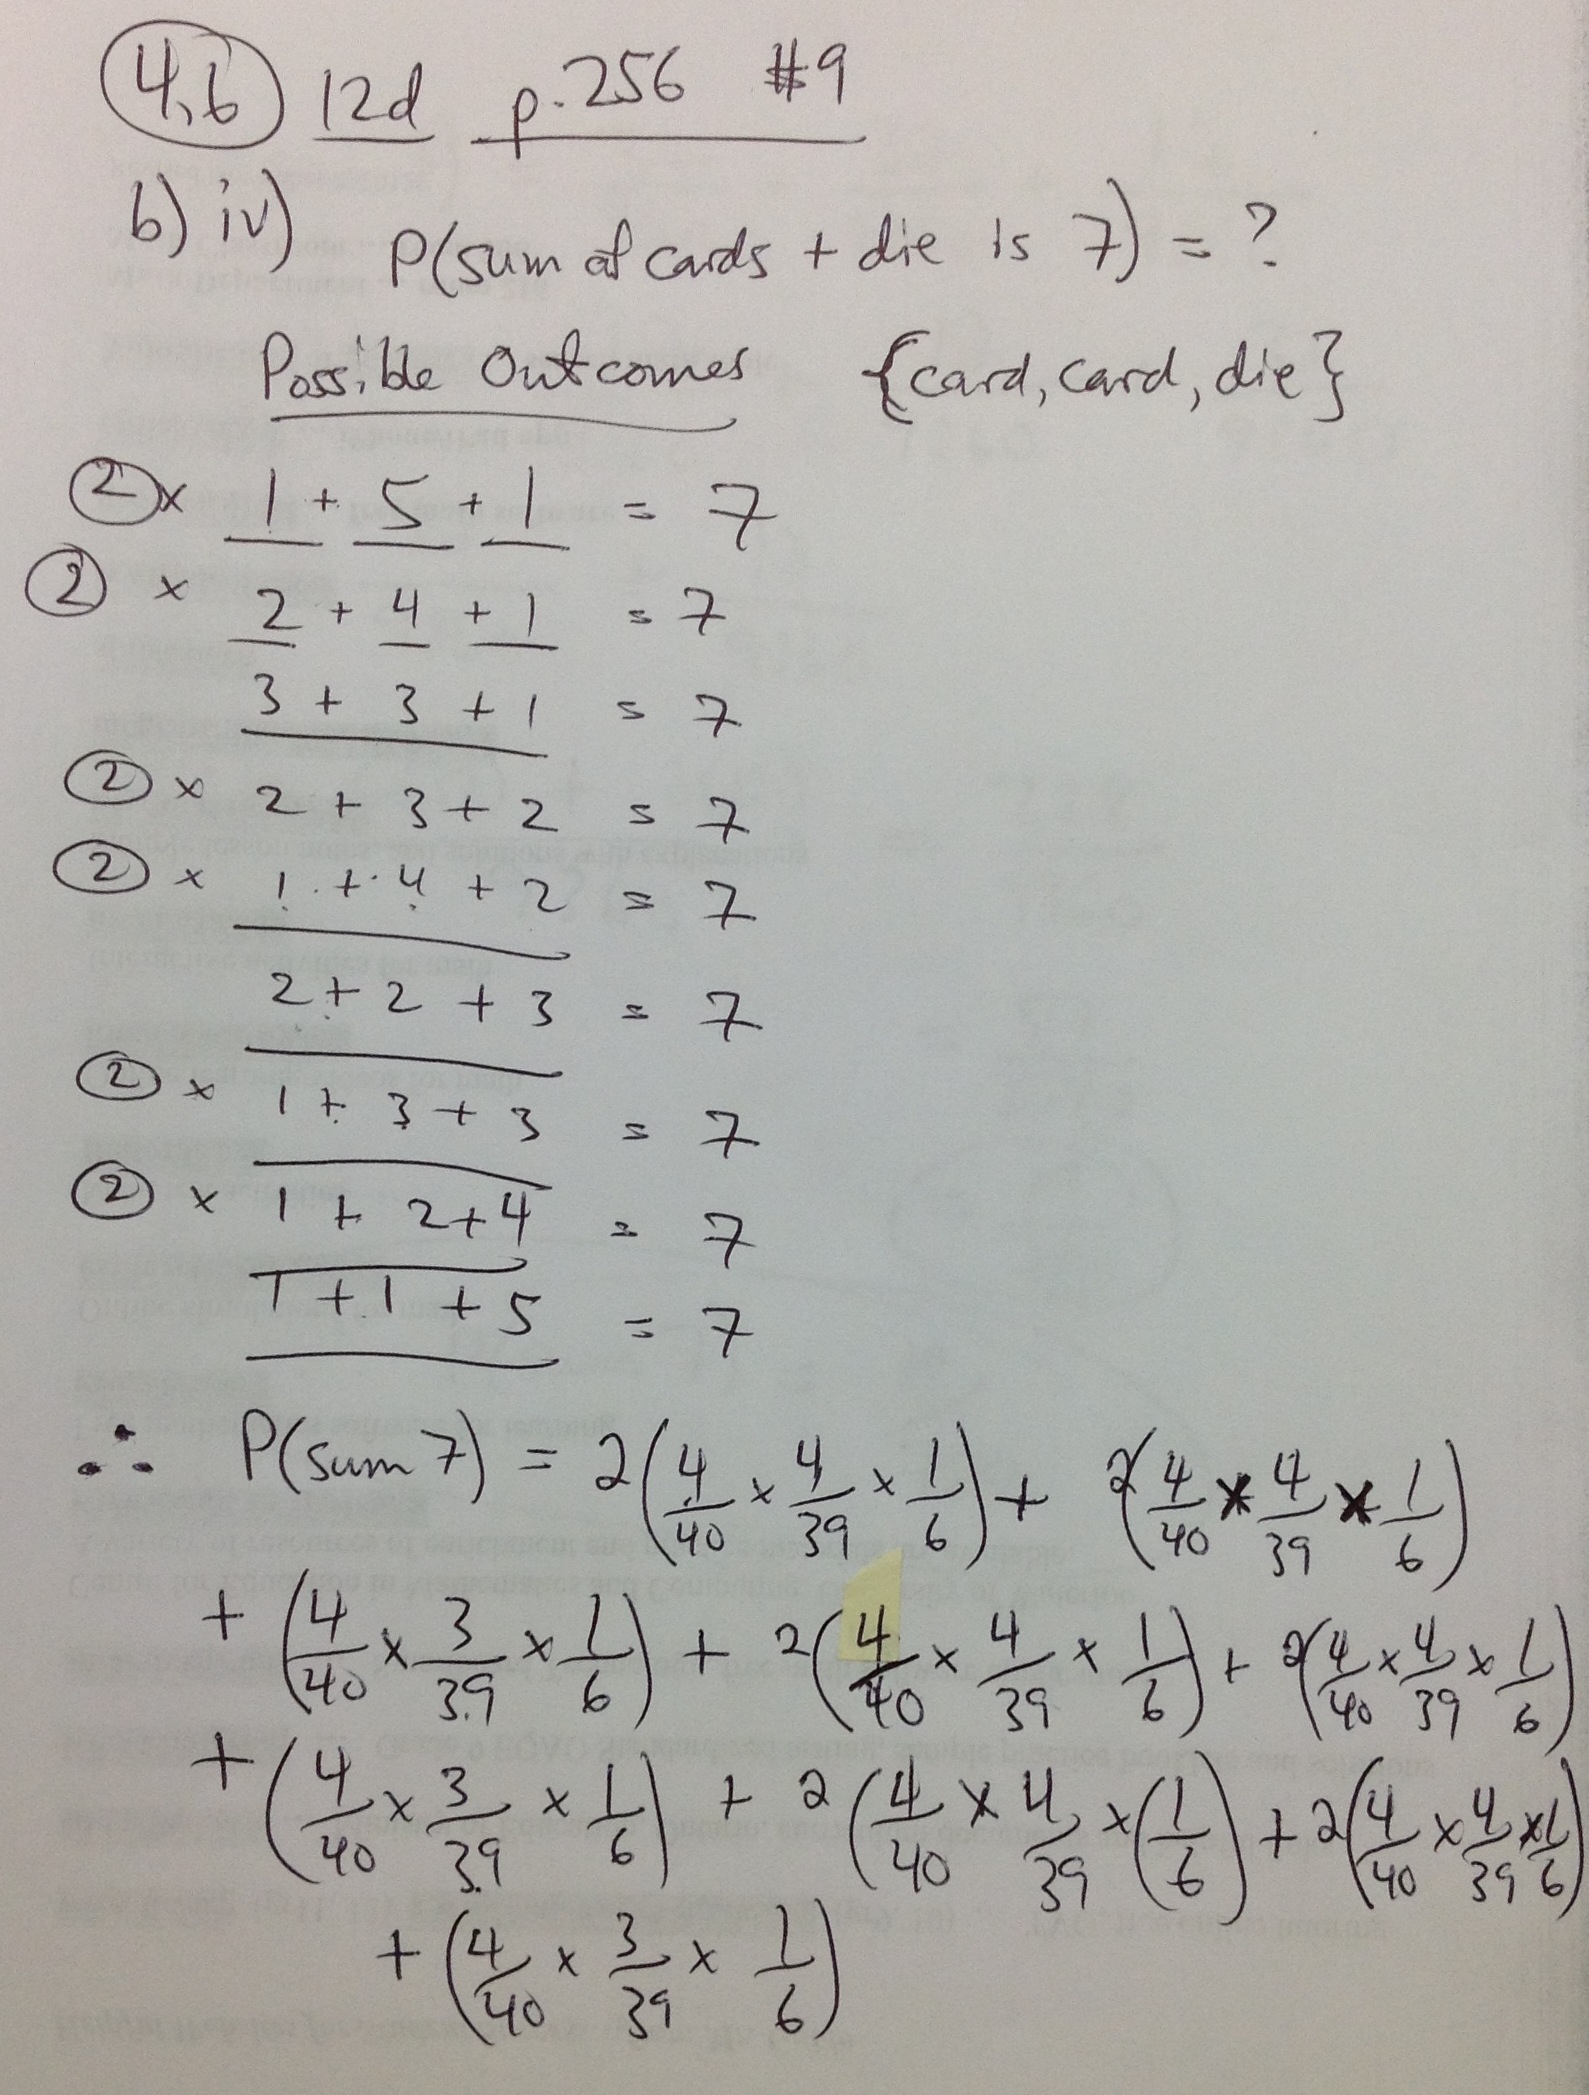 4.6 12d p.256 #9
b) iv) P(sum of cards + die is 7) = ?
Possible Outcomes {card, card, die}
2 x 1 + 5 + 1 = 7
2 x 2 + 4 + 1 = 7
3 + 3 + 1 = 7
2 x 2 + 3 + 2 = 7
2 x 1 + 4 + 2 = 7
2 + 2 + 3 = 7
2 x 1 + 3 + 3 = 7
2 x 1 + 2 + 4 = 7
1 + 1 + 5 = 7
∴ P(sum 7) = 2(4/40 x 4/39 x 1/6) + 2(4/40 x 4/39 x 1/6)
+ (4/40 x 3/39 x 1/6) + 2(4/40 x 4/39 x 1/6) + 2(4/40 x 4/39 x 1/6)
+ (4/40 x 3/39 x 1/6) + 2(4/40 x 4/39 x (1/6) + 2(4/40 x 4/39 x 1/6)
+ (4/40 x 3/39 x 1/6)